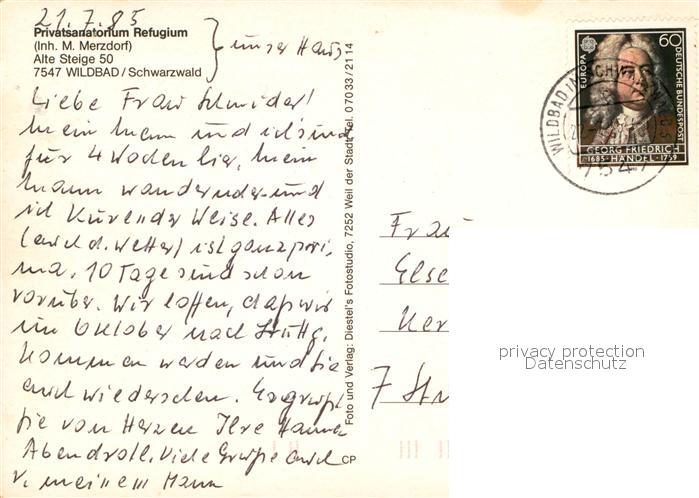 21.7.85
Privatsanatorium Refugium
(Inh. M. Merzdorf)
Alte Steige 50
7547 WILDBAD/Schwarzwald
unser Haus
Liebe Frau Schneider!
Mein Mann und ich sind
für 4 Wochen hier, mein
Mann wandernder- und
ich kurender Weise. Alles
(auch d. Wetter) ist ganz pri,
ma. 10 Tage sind schon
vorüber. Wir hoffen, daß wir
im Oktober nach Stuttg.
kommen werden und Sie
auch wiedersehen. Es grüßt
Sie von Herzen Ihre Hanna
Abendroth. Viele Grüße auch
v. meinem Mann
Foto und Verlag: Diestel's Fotostudio, 7252 Weil der Stadt, Tel. 07033/2114
CP
EUROPA
60
DEUTSCHE BUNDESPOST
GEORG FRIEDRICH
1685 · HÄNDEL · 1759
WILDBAD IM SCHWARZWALD
7547
Frau
Else
Her
7 Stu
privacy protection
Datenschutz